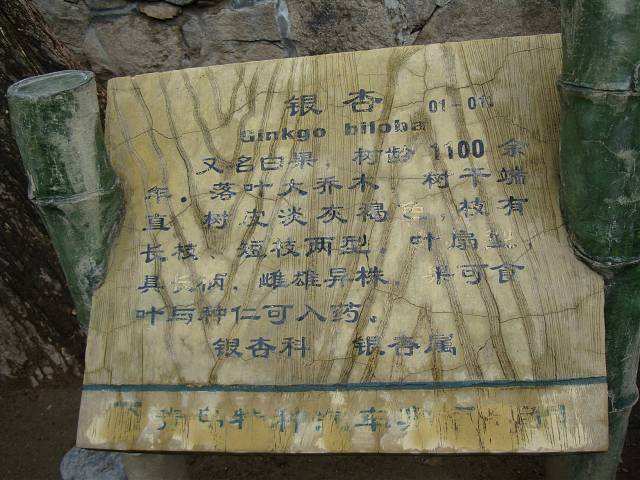 银杏 01-01
Ginkgo biloba
又名白果，树龄1100余
年。落叶大乔木，树干端
直，树皮淡灰褐色，枝有
长枝、短枝两型，叶扇型，
具长柄，雌雄异株，果可食
叶与种仁可入药。
银杏科 银杏属
特种汽车